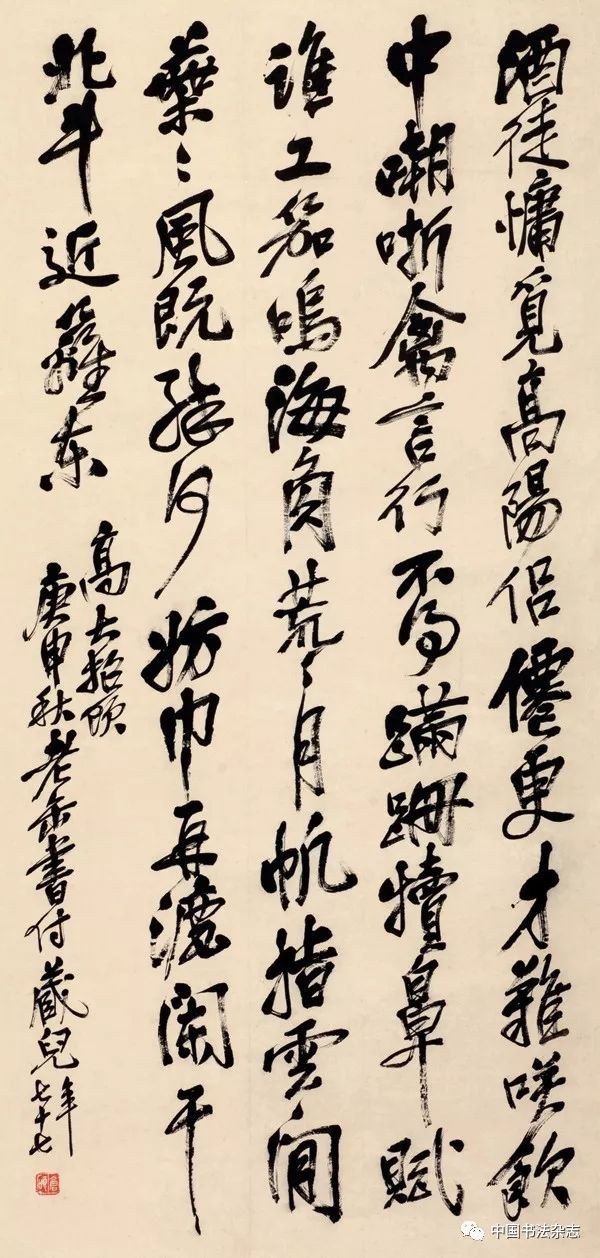 酒徒慵覓高陽侣僊吏才難咲飲
中嘲哳禽言行不得蹣跚犢鼻賦
誰工笳鳴海角荒〻月帆指雲間
葉〻風既何妨巾再漉闌干
北斗近籬東
高招飲
庚申秋老缶書付藏兒
年七十七
中国书法杂志